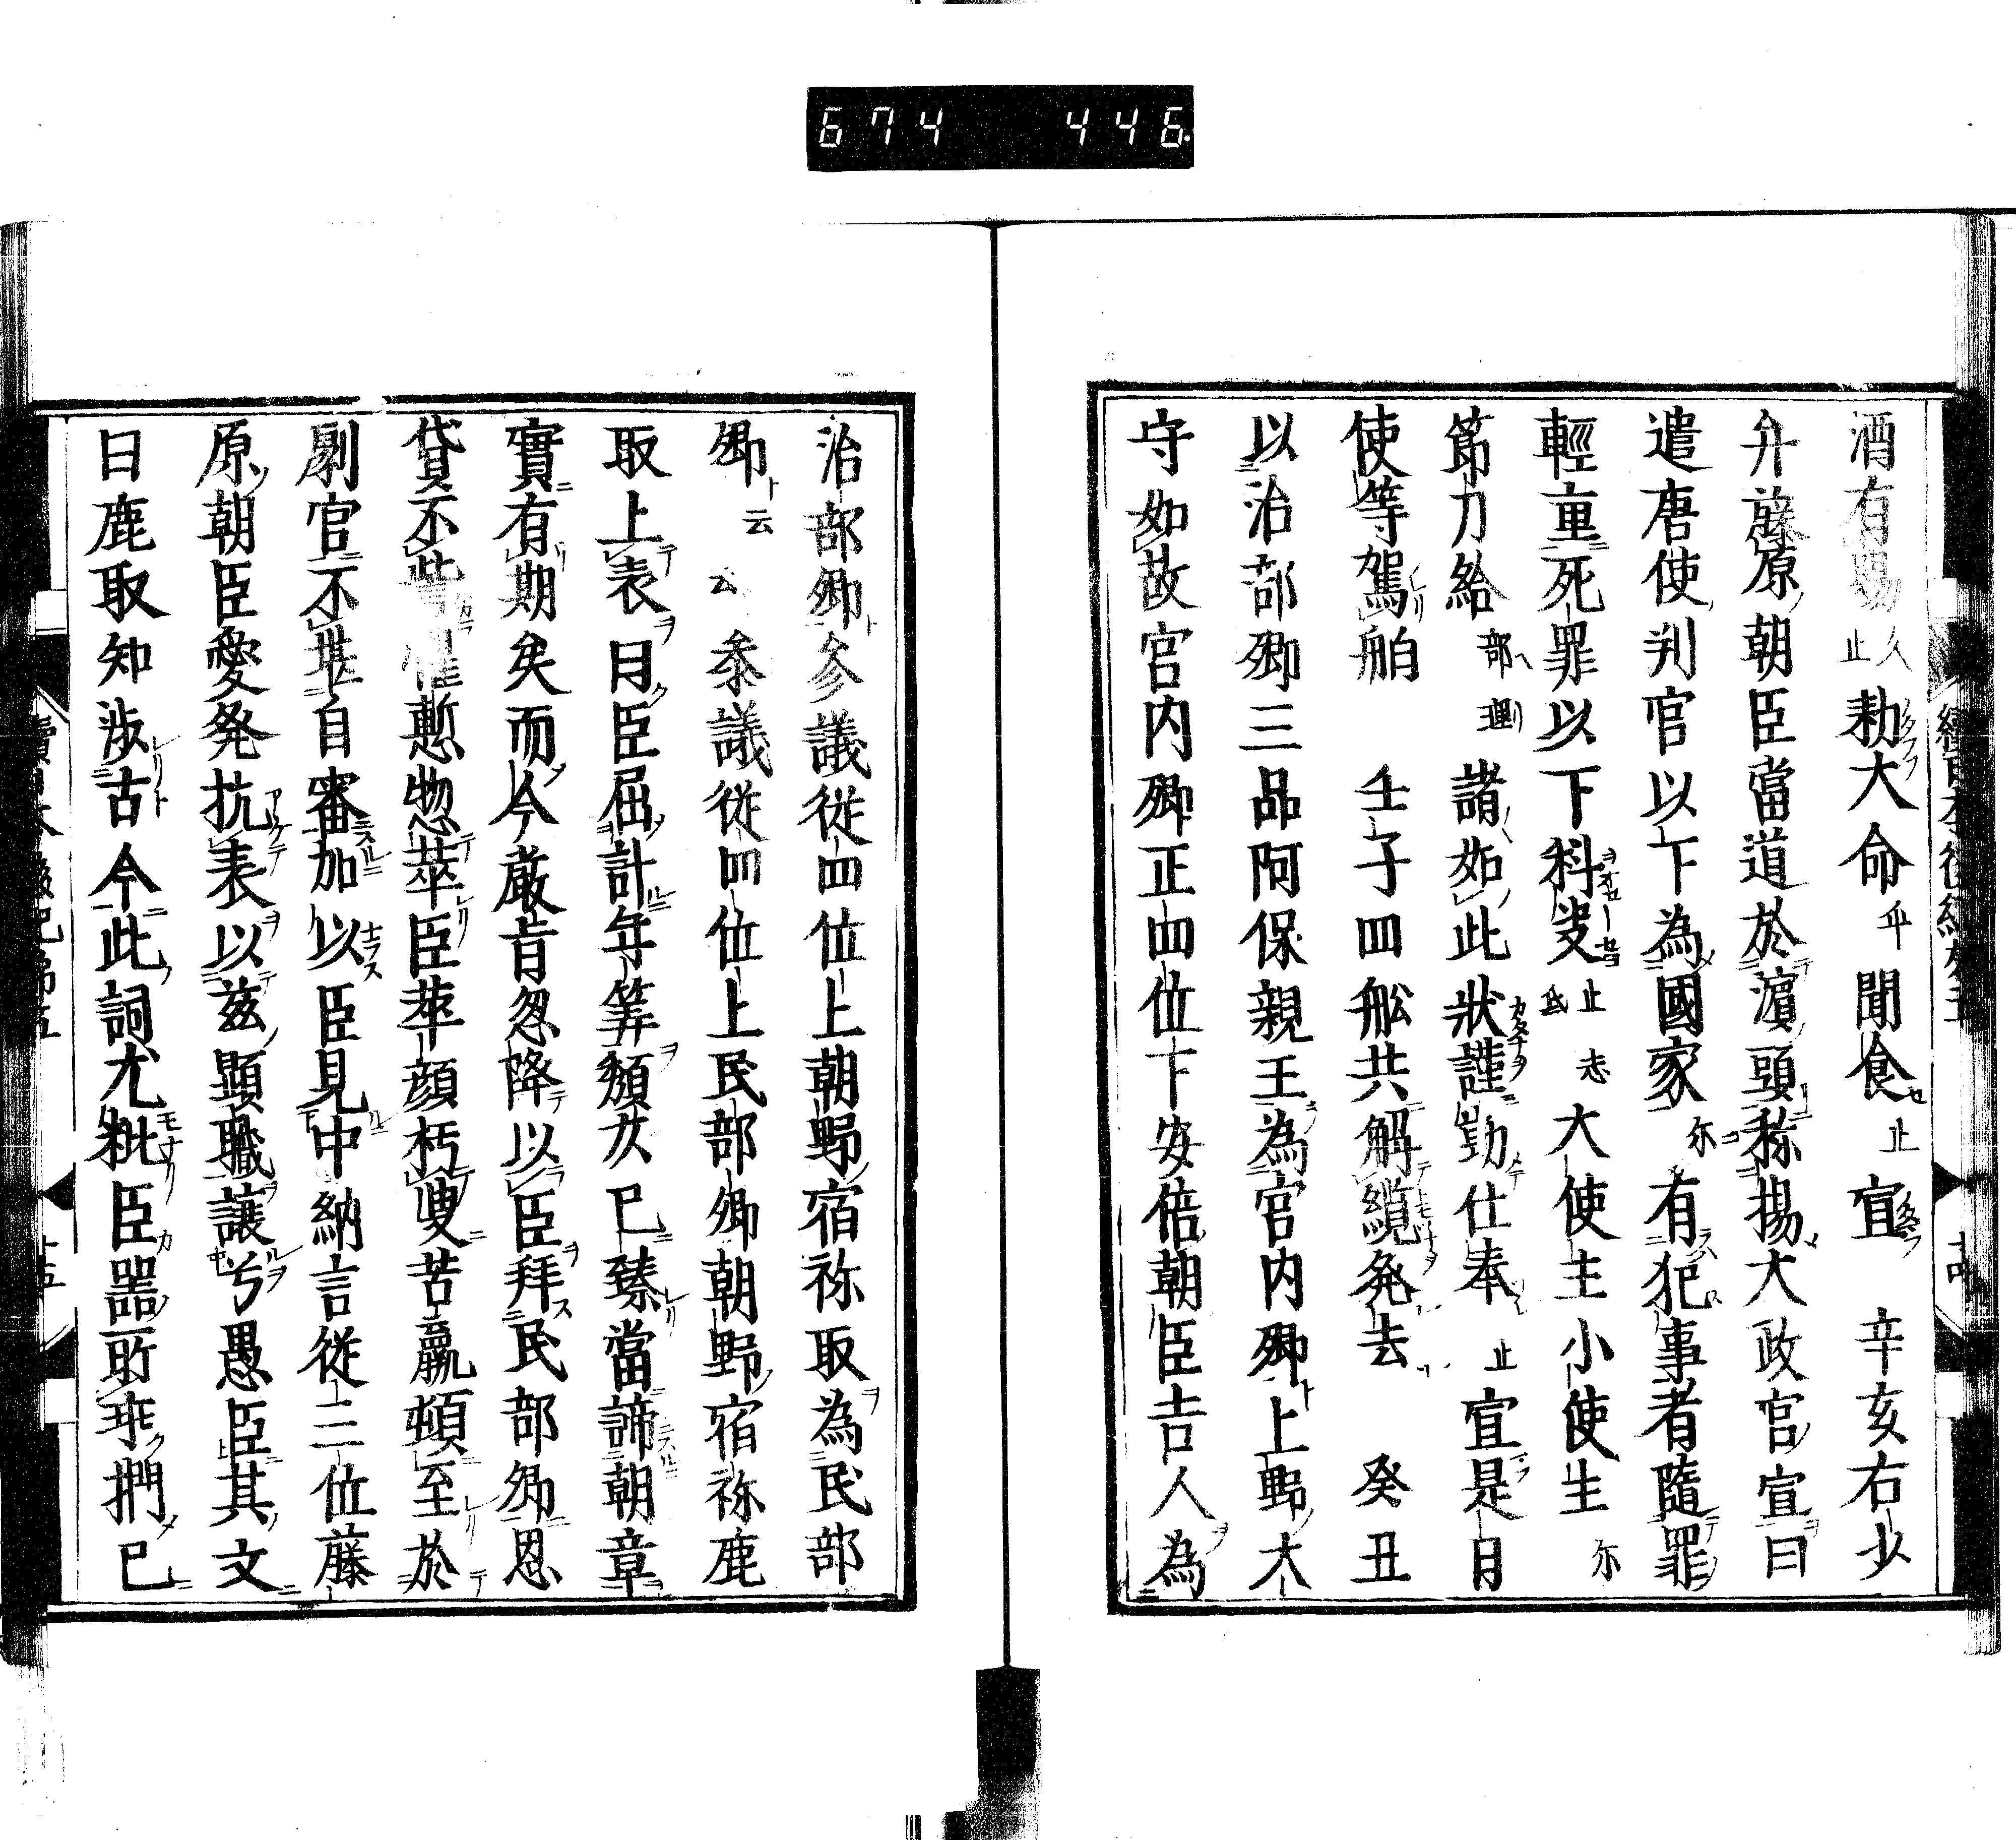 674 446
酒有賜久止勅大命乎聞食セ止宣 辛亥右少
弁藤原朝臣當道於濵頭称揚大政官宣曰
遣唐使判官以下為國家尓有犯事者隨罪
輕重死罪以下科妛止志氐大使主小使生尓
節刀給部理諸如此狀謹勤仕奉止宣是日
使等駕舶 壬子四舩共解纜発去 癸丑
以治部卿三品阿保親王為宮内卿上野大
守如故宮内卿正四位下安倍朝臣吉人為
治部卿參議從四位上朝野宿祢取為民部
卿云云叅議從四位上民部卿朝野宿祢鹿
取上表曰臣屈計年筭頽欠已臻當諦朝章
實有期矣而今厳旨忽降以臣拜民部卿恩
貸不訾慙惣萃臣萃顔朽叟苦羸頓至於
劇官不堪自審加以臣見中納言從三位藤
原朝臣愛発抗表以兹顯職譲兮愚臣其文
曰鹿取知渉古今此詞尤粃臣噐㪽班捫已